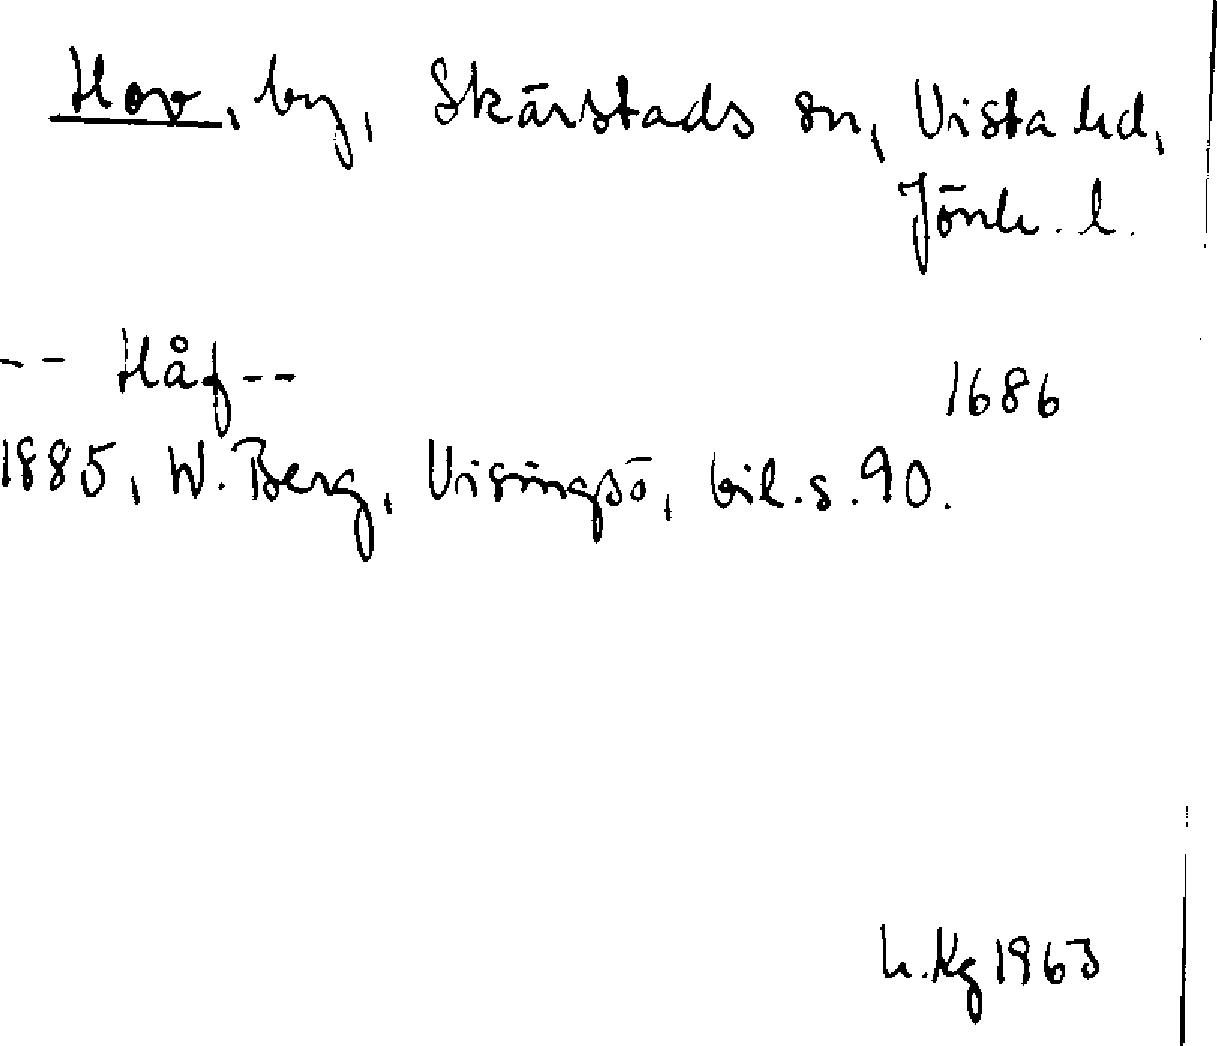 Hov, by, Skärstads sn, Vista hd,
Jönk. l.
-- Håf-- 1686
1885, W. Berg, Visingsö, bil. s. 90.
h. Kg 1963